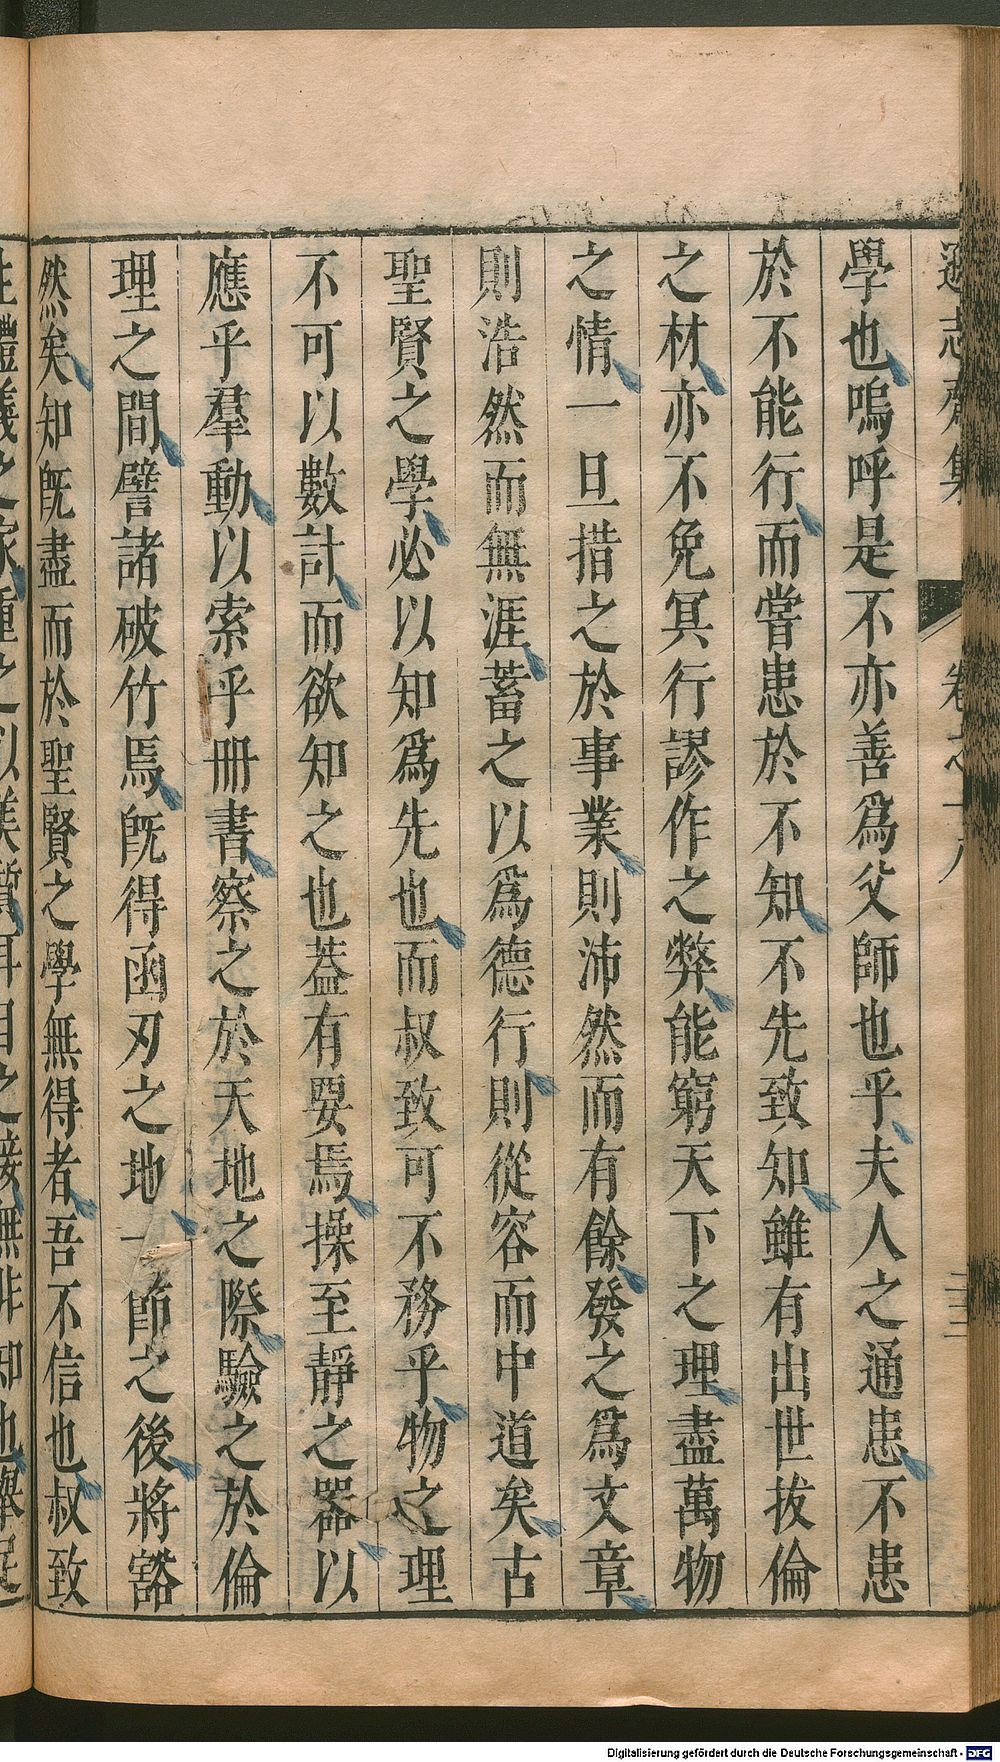 遜志齋集 卷之十八
學也嗚呼是不亦善爲父師也乎夫人之通患不患
於不能行而嘗患於不知不先致知雖有出世拔倫
之材亦不免冥行謬作之弊能窮天下之理盡萬物
之情一旦措之於事業則沛然而有餘發之爲文章
則浩然而無涯蓄之以爲德行則從容而中道矣古
聖賢之學必以知爲先也而叔致可不務乎物之理
不可以數計而欲知之也葢有要焉操至靜之器以
應乎羣動以索乎冊書察之於天地之際驗之於倫
理之間譬諸破竹焉旣得函刃之地一節之後將豁
然矣知旣盡而於聖賢之學無得者吾不信也叔致
Digitalisierung gefördert durch die Deutsche Forschungsgemeinschaft - DFG